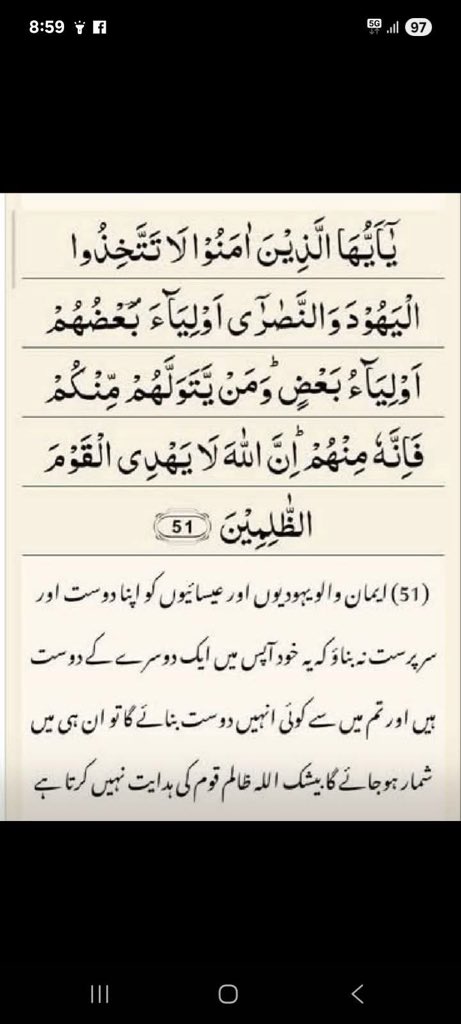 8:59
5G
97
يٰۤاَيُّهَا الَّذِيْنَ اٰمَنُوْا لَا تَتَّخِذُوا
الْيَهُوْدَ وَالنَّصٰرٰۤى اَوْلِيَآءَ ۘ بَعْضُهُمْ
اَوْلِيَآءُ بَعْضٍ ؕ وَمَنْ يَّتَوَلَّهُمْ مِّنْكُمْ
فَاِنَّهٗ مِنْهُمْ ؕ اِنَّ اللّٰهَ لَا يَهْدِى الْقَوْمَ
الظّٰلِمِيْنَ 51
(51) ایمان والو یہودیوں اور عیسائیوں کو اپنا دوست اور
سرپرست نہ بناؤ کہ یہ خود آپس میں ایک دوسرے کے دوست
ہیں اور تم میں سے کوئی انہیں دوست بنائے گا تو ان ہی میں
شمار ہوجائے گا بیشک اللہ ظالم قوم کی ہدایت نہیں کرتا ہے